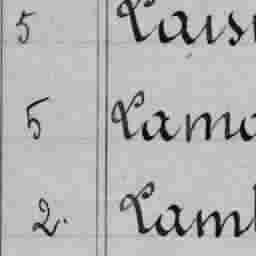 5 Lais
5 Lamo
2. Lamb